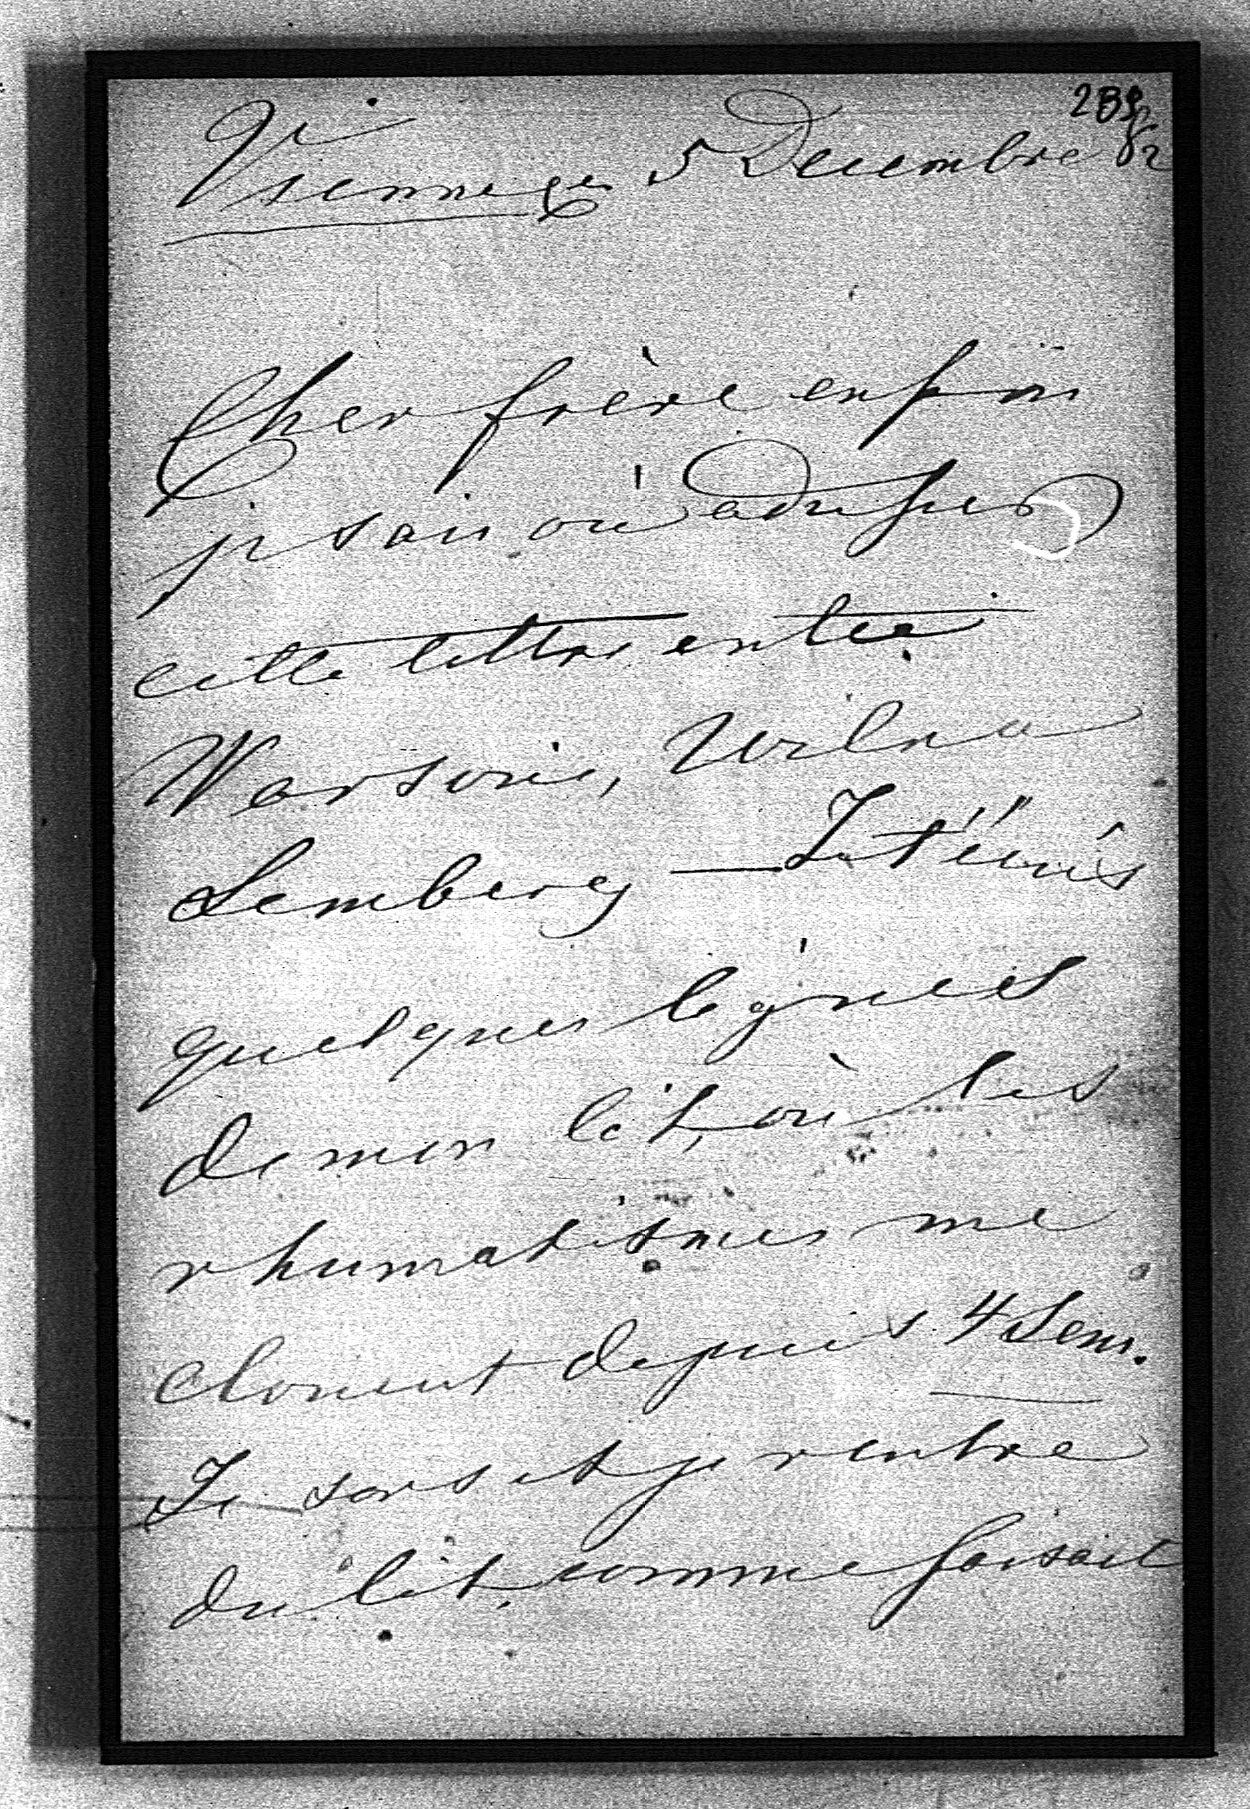 289
Vienne ce 5 Decembre 82
Cher frère enfin
je sais où adresser
cette lettre entre
Varsovie, Wilna
Lemberg — Je t'écris
quelques lignes
de mon lit, où les
rhumatismes me
clouent depuis 4 Sem.
Je sors et je rentre
du lit, comme faisait